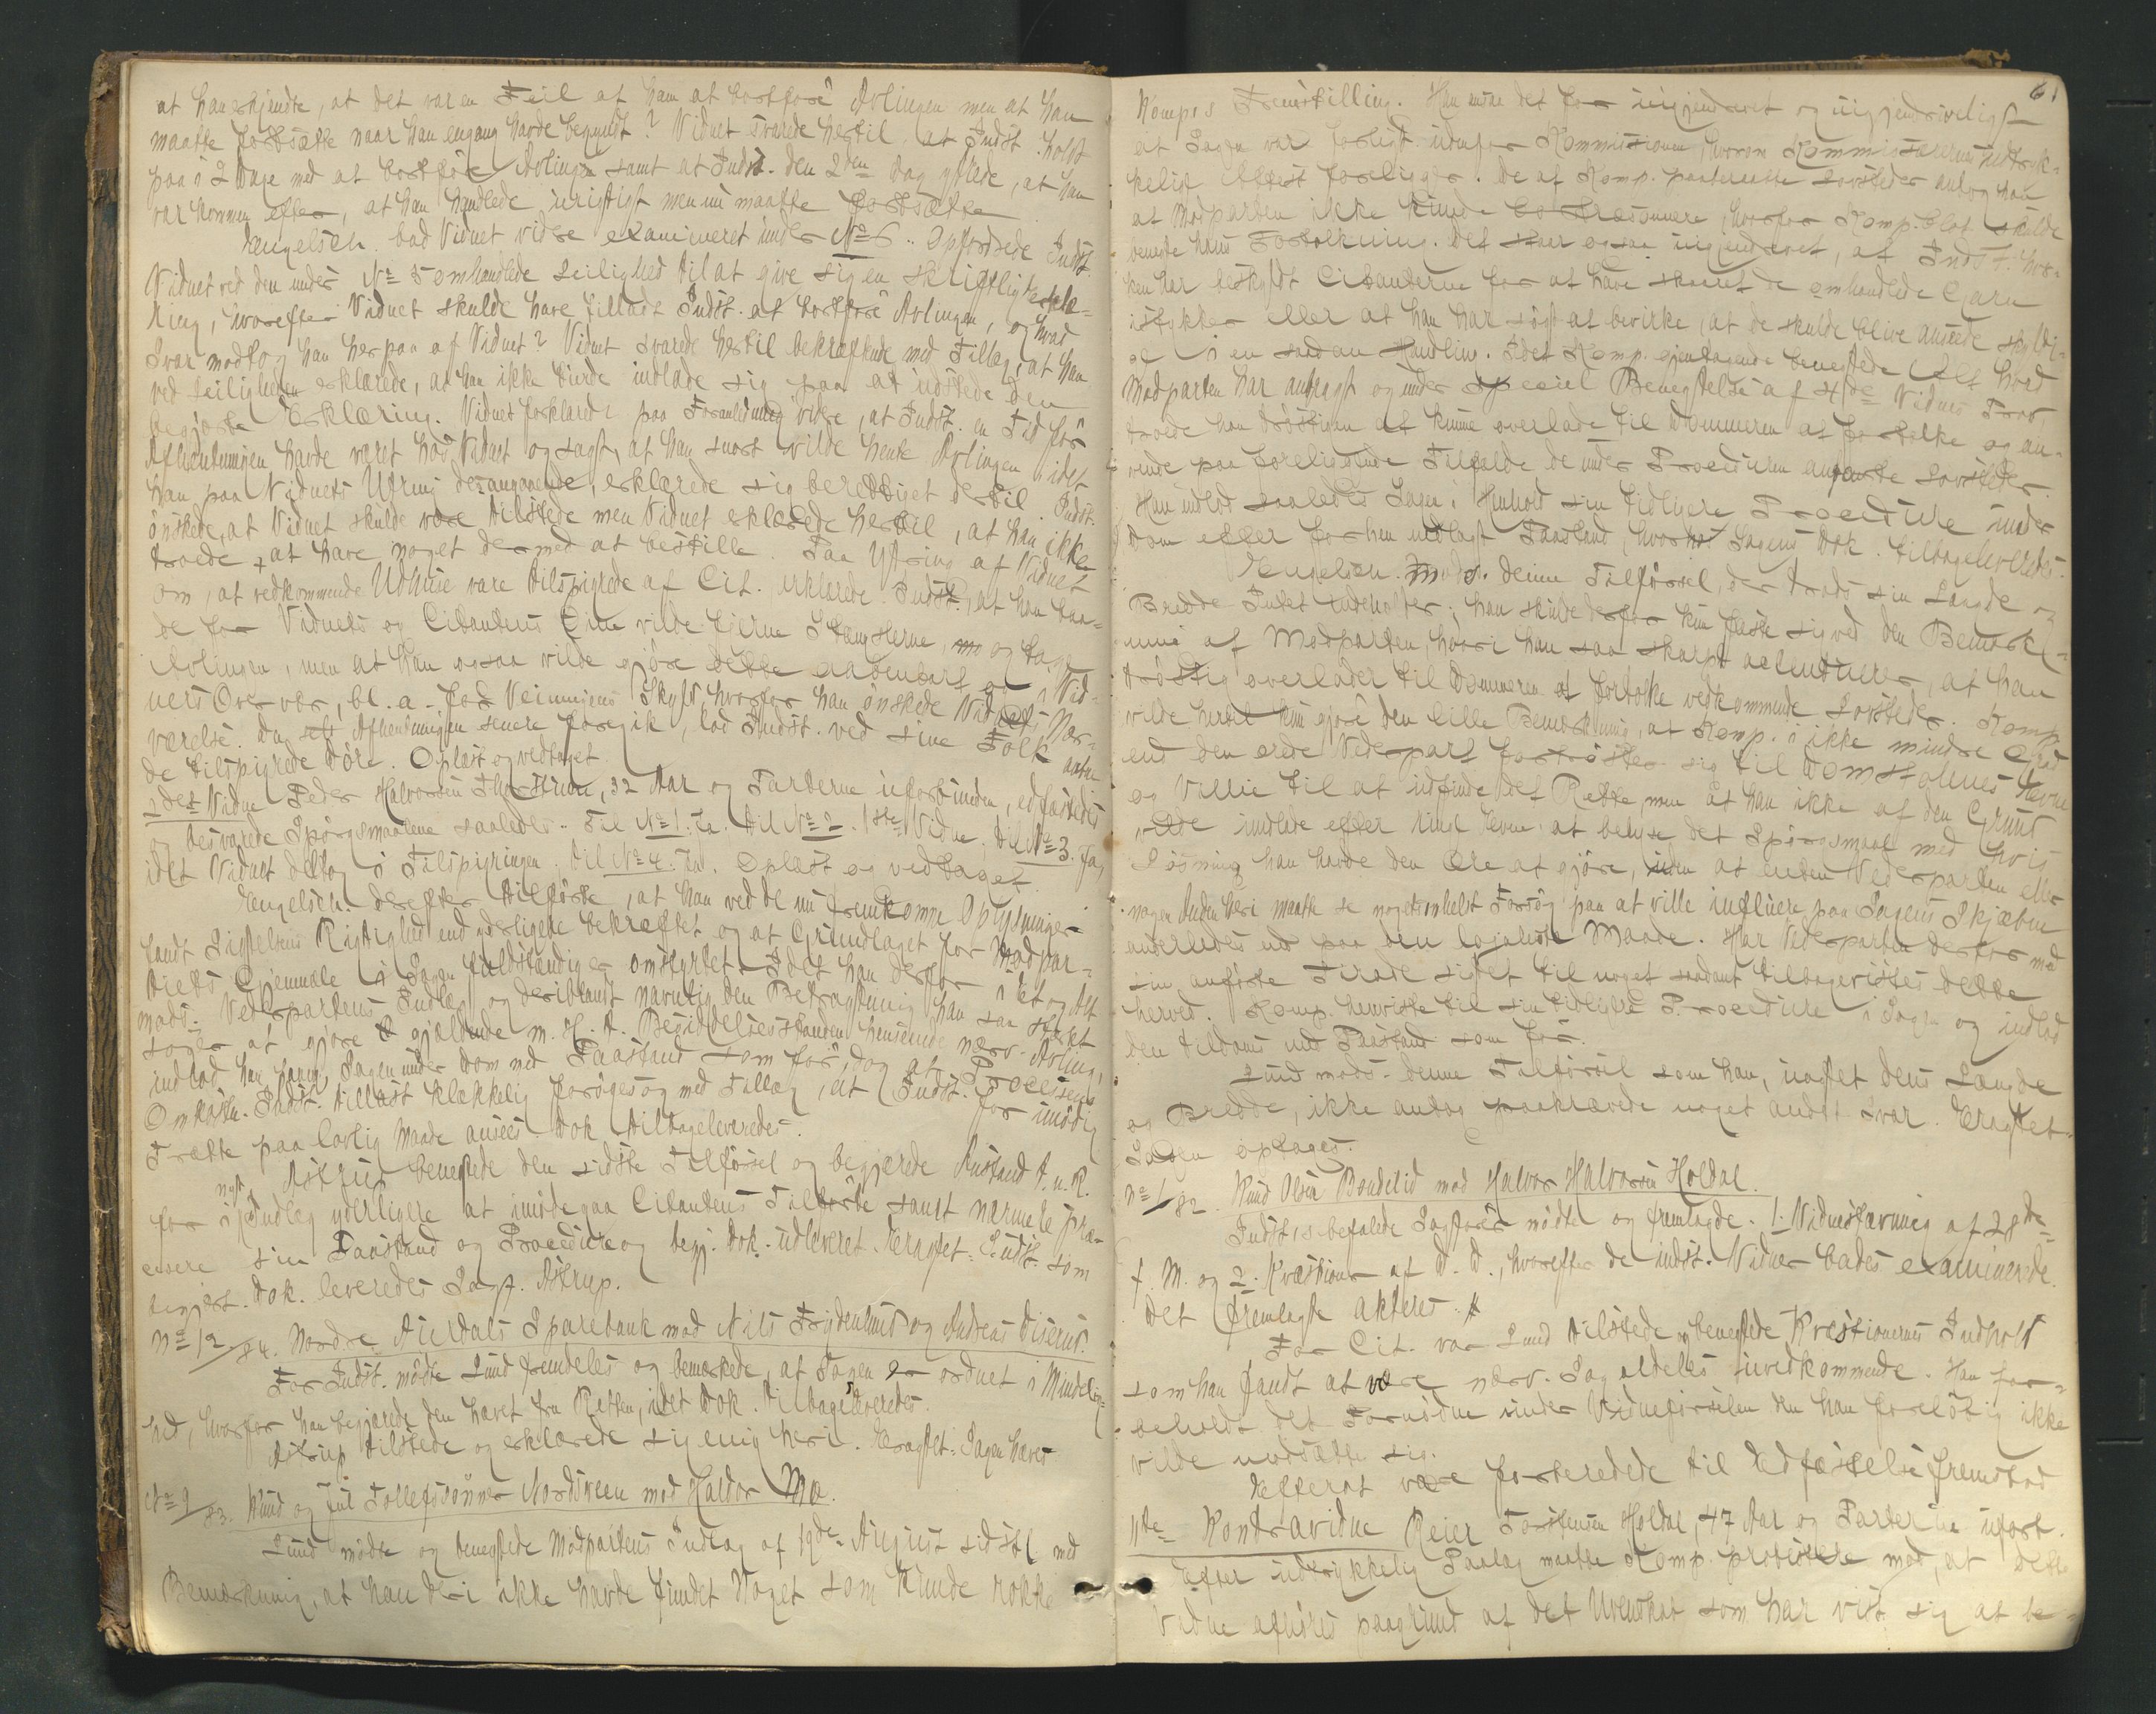 at han erkjendte, at det var en Feil af ham at bortføre Avlingen men at han
maatte fortsætte naar han engang havde begyndt? Vidnet svarede hertil at Indst. holdt
paa i 2 Dage med at bortføre Avlingen samt at Indst. den 2den Dag yttrede, at han
var kommen efter, at han handlede urigtigt men nu maatte fortsætte
Engelsen bad Vidnet videre examineret under No 6.. Opfordrede Indst.
Vidnet ved den under No 5 omhandlede Leilighed til at give sig en skriftlig Erklæ-
ring, hvorefter Vidnet skulde have tilladt Indst. at bortføre Avlingen, og hvad
Svar modtog han herpaa af Vidnet? Vidnet svarede hertil bekræftende med Tillæg, at han
ved Leiligheden erklærede, at han ikke turde indlade sig paa at udstede den
begjærte Erklæring. Vidnet forklarede paa Foranledning videre, at Indst. en Tid før
Afhentningen havde været hos Vidnet og sagt, at han snart vilde hente Avlingen idet
han paa Vidnets Ytring desangaaende, erklærede sig berettiget dertil. Indst.
ønskede, at Vidnet skulde være tilstede men Vidnet erklærede hertil, at han ikke
troede at have noget dermed at bestille. Paa Ytring af Vidnet
om, at vedkommende Udhuse vare tilspigrede af Cit. erklærede Indst., at han baa-
de for Vidnets og Citantens Øine vilde fjerne Stængslerne, og tage
Avlingen, men at han ogsaa vilde gjøre dette aabenbart og i Vid-
ners Overvær, bl. a. for Veiningens Skyld hvorfor han ønskede Vidnets Nær-
værelse. Da Afhentningen senere foregik, lod Indst. ved sine Folk
de tilspigrede Døre. Oplæst og vedtaget
2det Vidne Peder Halvorsen, 32 Aar og Parterne uforbunden, edfæstedes
Besvarede Spørgsmaalene saaledes. Til No 1. Ja. Til No 2. 1ste Vidne. Til No 3. Ja,
idet Vidnet deltog i Tilspigringen. Til No 4. Ja. Oplæst og vedtaget.
Engelsen derefter tilførte, at han ved de nu fremkomne Oplysninger
fandt Sigtelsens Rigtighed end yderligere bekræftet og at Grundlaget for Modpar-
tiets Gjenmæle i Sagen fuldstændig er omstyrtet. Idet han derfor i Et og Alt
mods. Vederpartens Indlæg og deriblandt navnlig den Betragtning han saa stærkt
søger at gjøre gjældende m. H. t. Besiddelsesstanden henseende nærv. Avling,
indlod han Sagen under Dom med Paastand som før, dog at Processens
Omkostn. Indst. tillagt klækkelig forøges og med Tillæg, at Indst. for unødig
Trætte paa lovlig Maade ansees. Dok. tilbageleveredes.
Astrup benegtede den sidste Tilførsel og begjærede Anstand t. n. R.
for i nyt Indlæg yderligere at imødegaa Citantens Tilførte samt nærmere præ-
cisere sin Paastand og Procedure og begj. Dok. udleveret. Eragtet: Indst. som
begjært. Dok. leveredes Sagf. Astrup.
No 12/84. Nordre Aurdals Sparebank mod Nils Frydenlund og Andreas Diserud.
For Indst. mødte Lund fremdeles og bemærkede, at Sagen er ordnet i Mindelig-
hed, hvorfor han begjærede den hævet fra Retten, idet Dok. tilbageleveredes.
Astrup tilstede og erklærede sig enig heri. Eragtet: Sagen hæves
No 9/83. Knud og Juul Tollefssønner Nordsveen mod Haldor Mø.
Lund mødte og benegtede Modpartens Indlæg af 19de August sidstl. med
Bemærkning, at han deri ikke havde fundet Noget som kunde rokke
61
Komp.s Fremstilling. Han ansaa det for uigjendrevet og uigjendriveligt
at Sagen var forligt udenfor Kommissionen, hvorom Kommissærernes udtryk-
kelige Attest foreligger. De af Komp. paaberaabte Lovsteder antog han
at Modparten ikke kunde bortræsonnere, hvorfor Komp. blot skulde
benegte hans Fortolkning. Det staar ogsaa uigjendrevet, at Indst. hver-
ken har beskyldt Citanterne for at have skaaret de omhandlede Garn
istykker eller at han har søgt at bevirke, at de skulde blive ansede skyldi-
ge i en saadan Handling. Idet Komp. gjentagende benegtede Alt hvad
Modparten har anbragt og under speciel Benegtelse af 4de Vidnes Prov,
troede han trøstigen at kunne overlade til Dommeren at fortolke og an-
vende paa foreliggende Tilfælde de under Proceduren anførte Lovsteder.
Han indlod saaledes Sagen i Henhold sin tidligere Procedure under
Dom efter forhen nedlagt Paastand, hvorhos Sagens Dok. tilbageleveredes.
Engelsen mods. denne Tilførsel, der trods sin Længde og
Bredde Intet indeholder; han skulde derfor kun fæste sig ved den Bemærk-
ning af Modparten, hvori han saa skarpt accentuerer, at han
trøstig overlader til Dommeren at fortolke vedkommende Lovsteder. Komp.
vilde hertil kun gjøre den lille Bemærkning, at Komp. i ikke mindre Grad
end den ærede Vederpart fortrøster sig til Domstolenes Evne
og Villie til at udfinde det Rette, men at han ikke af den Grund
vilde undlade efter ringe Evne at belyse det Spørgsmaal med hvis
Løsning han havde den Ære at gjøre, uden at enten Vederparten eller
nogen Anden heri maatte se nogetsomhelst Forsøg paa at ville influere paa Sagens Skjæbne
anderledes end paa den lojaleste Maade. Har Vederparten derfor med
sin anførte Tirade sigtet til noget saadant tilbagevistes dette
herved. Komp. henviste til sin tidligere Procedure i Sagen og indlod
den tildoms med Paastand som før.
Lund mods. denne Tilførsel som han, uagtet dens Længde
og Bredde, ikke antog paakrævede noget andet Svar. Eragtet:
Sagen optages.
No 1/82. Knud Olsen Bøndelid mod Halvor Halvorsen Holdal.
Indst.s befalede Sagfører mødte og fremlagde. 1. Vidnestævning af 28de
f. M. og 2. Kvæstioner af D. D., hvorefter de indst. Vidner bades examinerede.
Det fremlagte akteres
For Cit. var Lund tilstede og benegtede Kvæstionernes Indhold
som han fandt at være nærv. Sag aldeles uvedkommende. Han for-
beholdt det Fornødne under Vidneførselen den han foreløbig ikke
vilde modsætte sig.
Efterat være forberedede til Edfæstelse fremstod
1ste Kontravidne Reier Torstensen Holdal, 47 Aar og Parterne uforb.
Efter udtrykkelig Paalæg maatte Komp. protestere mod, at dette
Vidne afhøres paagrund af det Uvenskab som har vist sig at be-